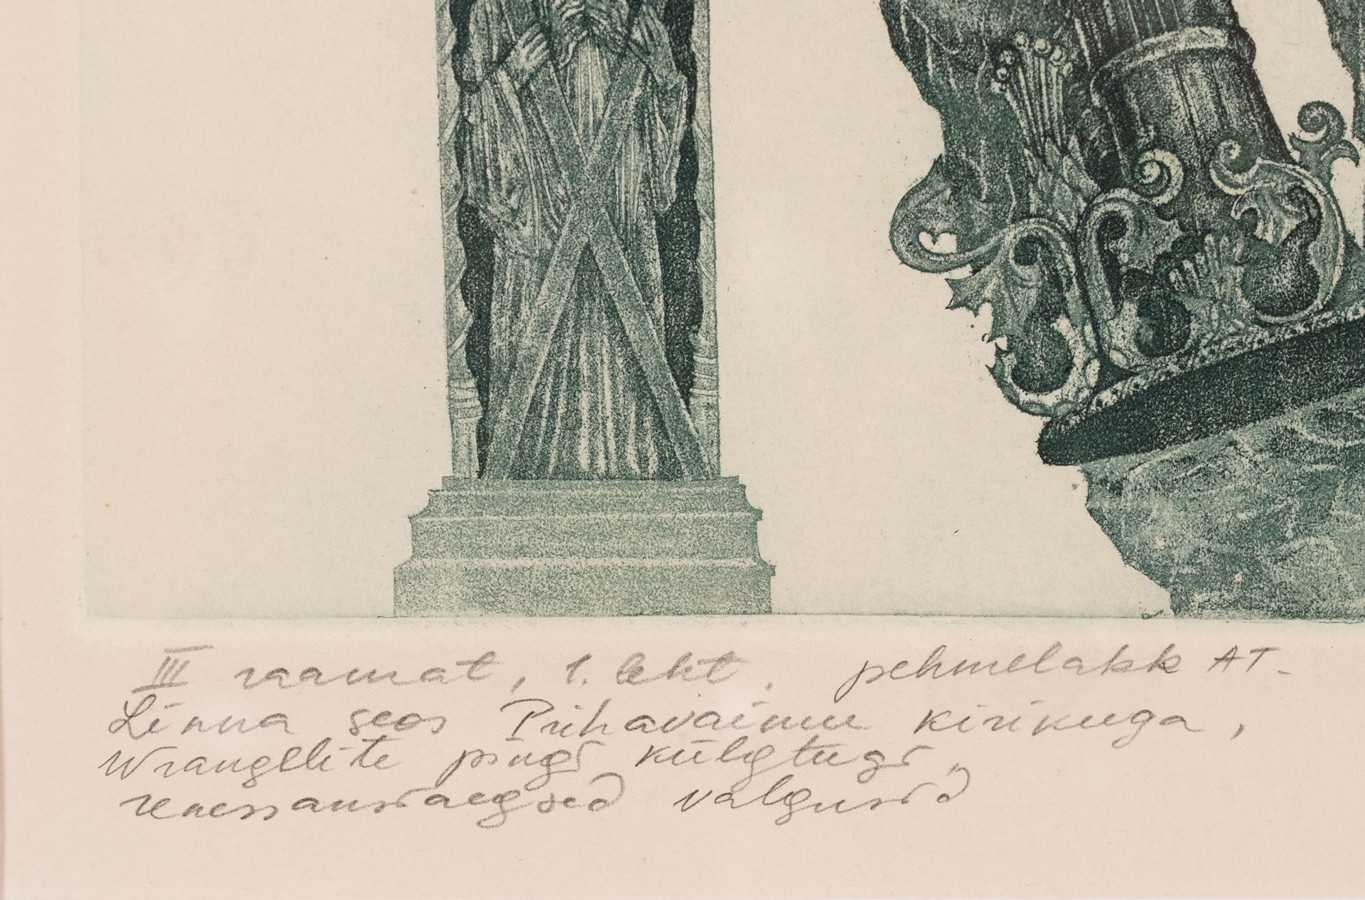 III raamat, 1. leht, pehmelakk AT-
Linna seos Pühavaimu kirikuga,
Wrangellite pingi külgtugi,
renessansiaegsed valgustid